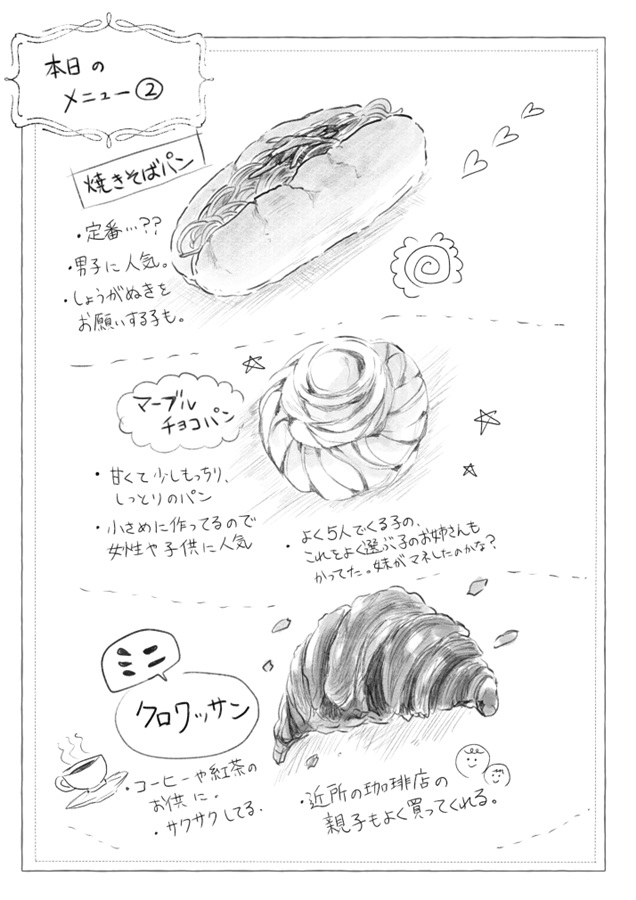 本日の
メニュー②
焼きそばパン
・定番…??
・男子に人気。
・しょうがぬきを
お願いする子も。
マーブル
チョコパン
・甘くて少しもっちり、
しっとりのパン
・小さめに作ってるので
女性や子供に人気
・よく5人でくる子の、
これをよく選ぶ子のお姉さんも
かってた。妹がマネしたのかな?
ミニ
クロワッサン
・コーヒーや紅茶の
お供に。
・サクサクしてる.
・近所の珈琲店の
親子もよく買ってくれる。